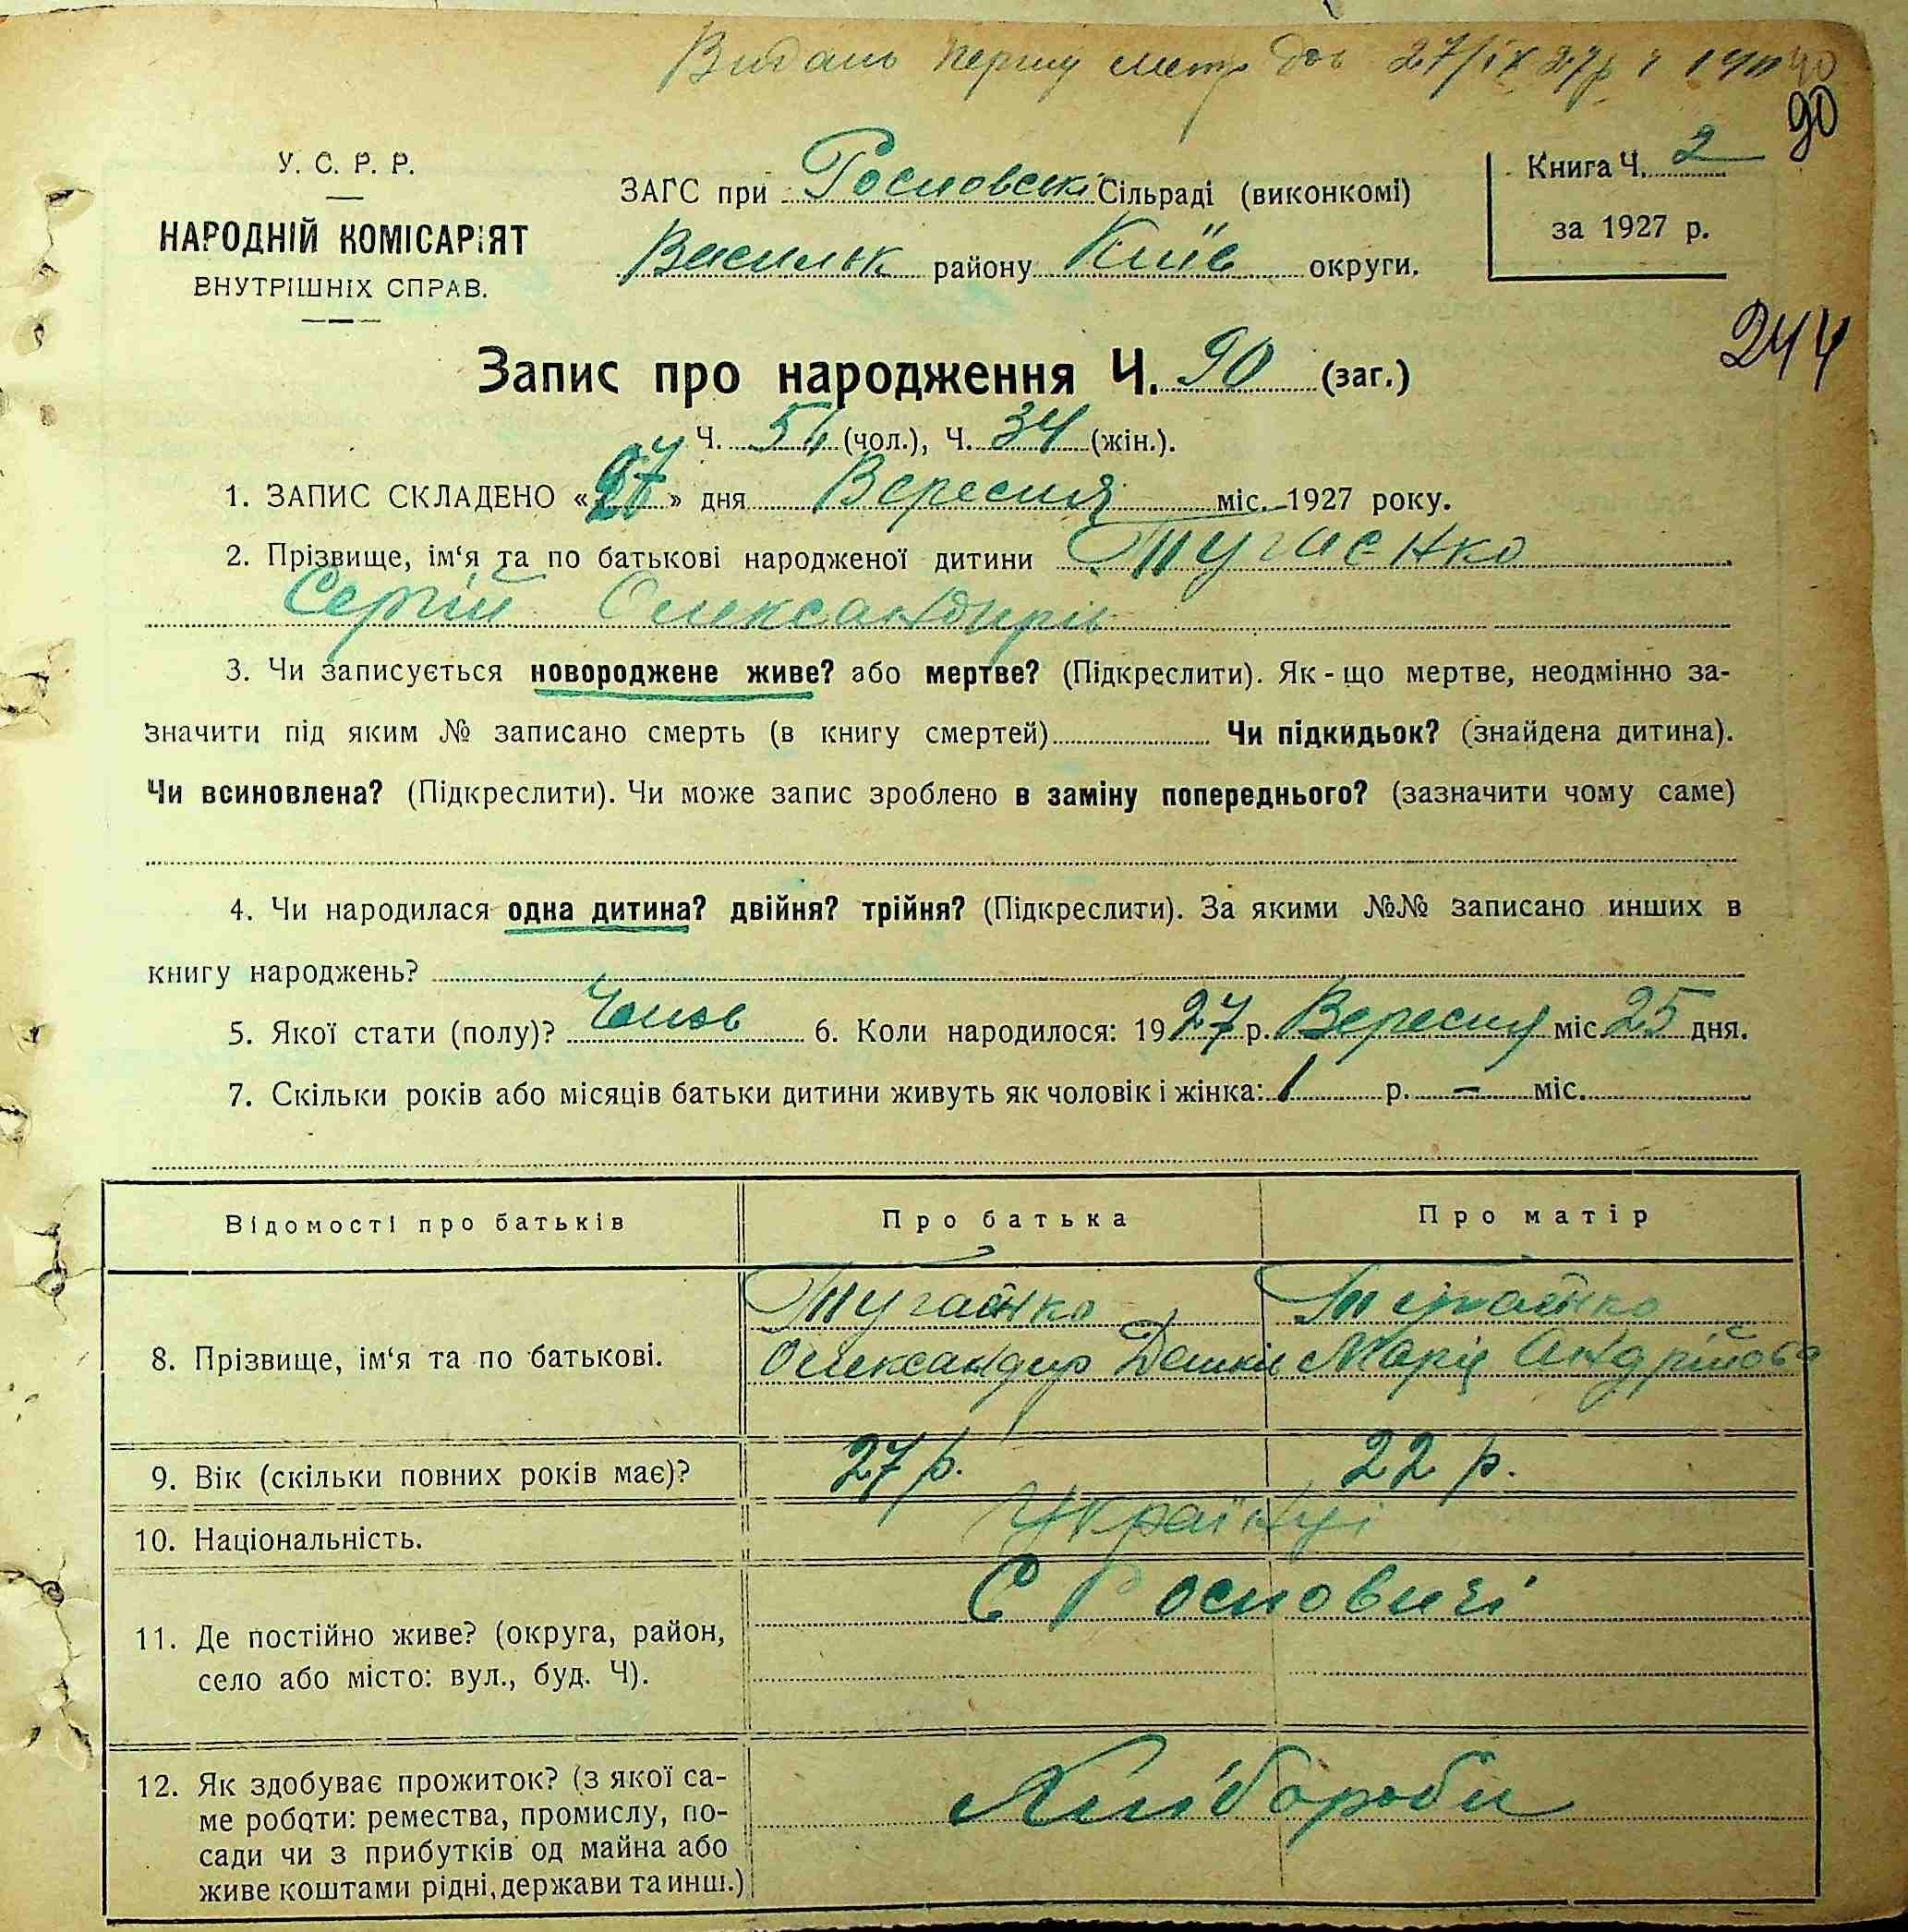 Видань першу метр 27/IX 27р
90
У. С. Р. Р.
НАРОДНІЙ КОМІСАРІЯТ
ВНУТРІШНІХ СПРАВ.
ЗАГС при Росновські Сільраді (виконкомі)
Васильк району Київ округи.
Книга Ч. 2
за 1927 р.
244
Запис про народження Ч. 90 (заг.)
Ч. 56 (чол.), Ч. 34 (жін.).
1. ЗАПИС СКЛАДЕНО «27» дня Вересня міс. 1927 року.
2. Прізвище, ім‘я та по батькові народженої дитини Тугаєнко
Сергій Олександрів
3. Чи записується новороджене живе? або мертве? (Підкреслити). Як-що мертве, неодмінно за-
значити під яким № записано смерть (в книгу смертей) Чи підкидьок? (знайдена дитина).
Чи всиновлена? (Підкреслити). Чи може запис зроблено в заміну попереднього? (зазначити чому саме)
4. Чи народилася одна дитина? двійня? трійня? (Підкреслити). За якими №№ записано инших в
книгу народжень?
5. Якої стати (полу)? Чолов 6. Коли народилося: 1927 р. Вересня міс 25 дня.
7. Скільки років або місяців батьки дитини живуть як чоловік і жінка: 1 р. – міс.
Відомості про батьків Про батька Про матір
Тугаєнко Тугаєнко
8. Прізвище, ім‘я та по батькові. Олександр Марія Андрійова
9. Вік (скільки повних років має)? 27 р. 22 р.
10. Національність. Українці
11. Де постійно живе? (округа, район,
село або місто: вул., буд. Ч).
С Росновичі
12. Як здобуває прожиток? (з якої са-
ме роботи: ремества, промислу, по-
сади чи з прибутків од майна або
живе коштами рідні, держави та инш.)
Хлібороби